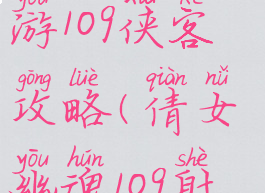 yóu xiá kè
游109侠客
gōng lüè qiàn nǚ
攻略(倩女
yōu hún shè
幽魂109射